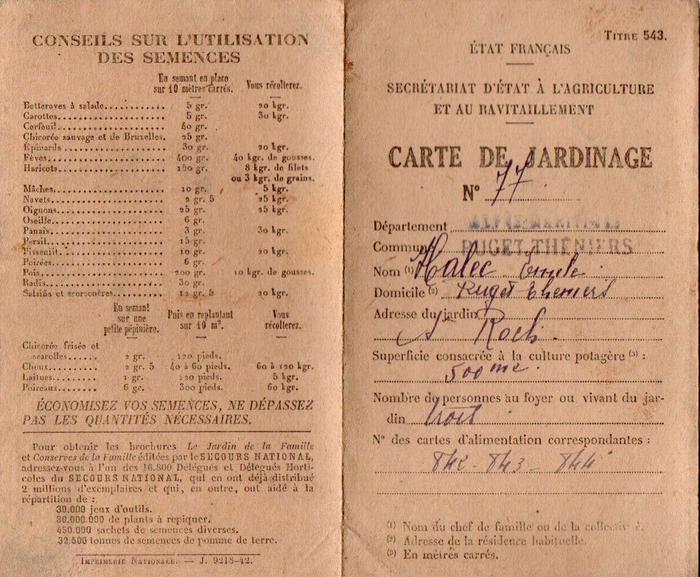 CONSEILS SUR L'UTILISATION
DES SEMENCES
En semant en place
sur 10 mètres carrés.
Vous récolterez.
Betteraves à salade........... 5 gr. 20 kgr.
Carottes........... 5 gr. 30 kgr.
Cerfeuil........... 40 gr.
Chicorée sauvage et de Bruxelles. 25 gr.
Épinards........... 30 gr. 20 kgr.
Fèves........... 400 gr. 40 kg. de gousses.
Haricots........... 250 gr. 8 kgr. de filets
ou 3 kgr. de grains.
Mâches........... 10 gr. 5 kgr.
Navets........... 2 gr. 5 25 kgr.
Oignons........... 25 gr. 25 kgr.
Oseille........... 6 gr.
Panais........... 3 gr. 30 kgr.
Persil........... 15 gr.
Pissenlit........... 10 gr. 20 kgr.
Poirées........... 6 gr.
Pois........... 200 gr. 10 kgr. de gousses.
Radis........... 30 gr.
Salsifis et scorsonères........... 12 gr. 5 20 kgr.
En semant
sur une
petite pépinière.
Puis en replantant
sur 10 m².
Vous
récolterez.
Chicorée frisée et
scarolles........... 2 gr. 120 pieds.
Choux........... 2 gr. 5 40 à 60 pieds. 60 à 120 kgr.
Laitues........... 1 gr. 120 pieds. 5 kgr.
Poireaux........... 6 gr. 300 pieds. 60 kgr.
ÉCONOMISEZ VOS SEMENCES, NE DÉPASSEZ
PAS LES QUANTITÉS NÉCESSAIRES.
Pour obtenir les brochures Le Jardin de la Famille
et Conserves de la Famille éditées par le SECOURS NATIONAL,
adressez-vous à l'un des 16.800 Délégués et Délégués Horti-
coles du SECOURS NATIONAL, qui en ont déjà distribué
2 millions d'exemplaires et qui, en outre, ont aidé à la
répartition de :
30.000 jeux d'outils.
30.000.000 de plants à repiquer.
450.000 sachets de semences diverses.
32.500 tonnes de semences de pomme de terre.
IMPRIMERIE NATIONALE. — J. 9218-42.
TITRE 543.
ÉTAT FRANÇAIS
SECRÉTARIAT D'ÉTAT À L'AGRICULTURE
ET AU RAVITAILLEMENT
CARTE DE JARDINAGE
N° 77
Département ALPES-MARITIMES
Commune PUGET-THÉNIERS
Nom (1) Halec Emile
Domicile (2) Puget Theniers
Adresse du jardin
St Roch
Superficie consacrée à la culture potagère (3) :
500 m²
Nombre de personnes au foyer ou vivant du jar-
din trois
N° des cartes d'alimentation correspondantes :
842 - 843 - 844
(1) Nom du chef de famille ou de la collectivité.
(2) Adresse de la résidence habituelle.
(3) En mètres carrés.